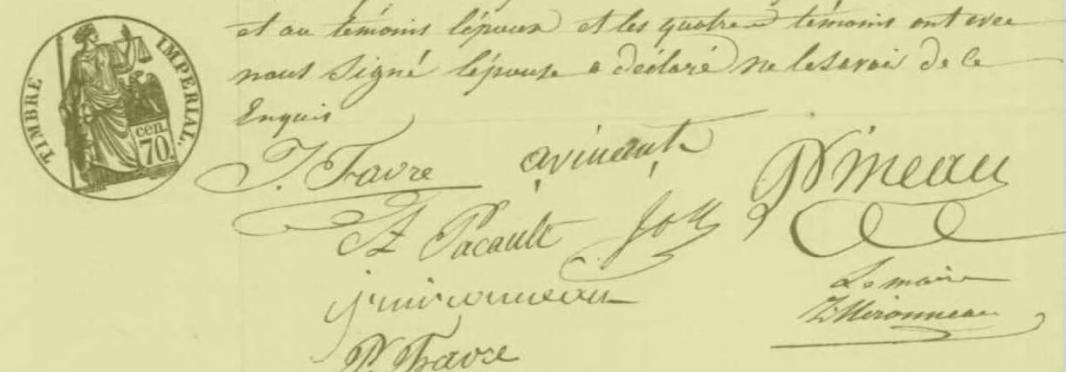 et au témoins lépoux et les quatre témoins ont avec
nous Signé lépouse a déclaré ne le savoir de ce
Enquis
TIMBRE IMPERIAL.
cen.
70.
J. Favre avinant Pineau
Pacault
P. Favre
Le maire
Mironneau